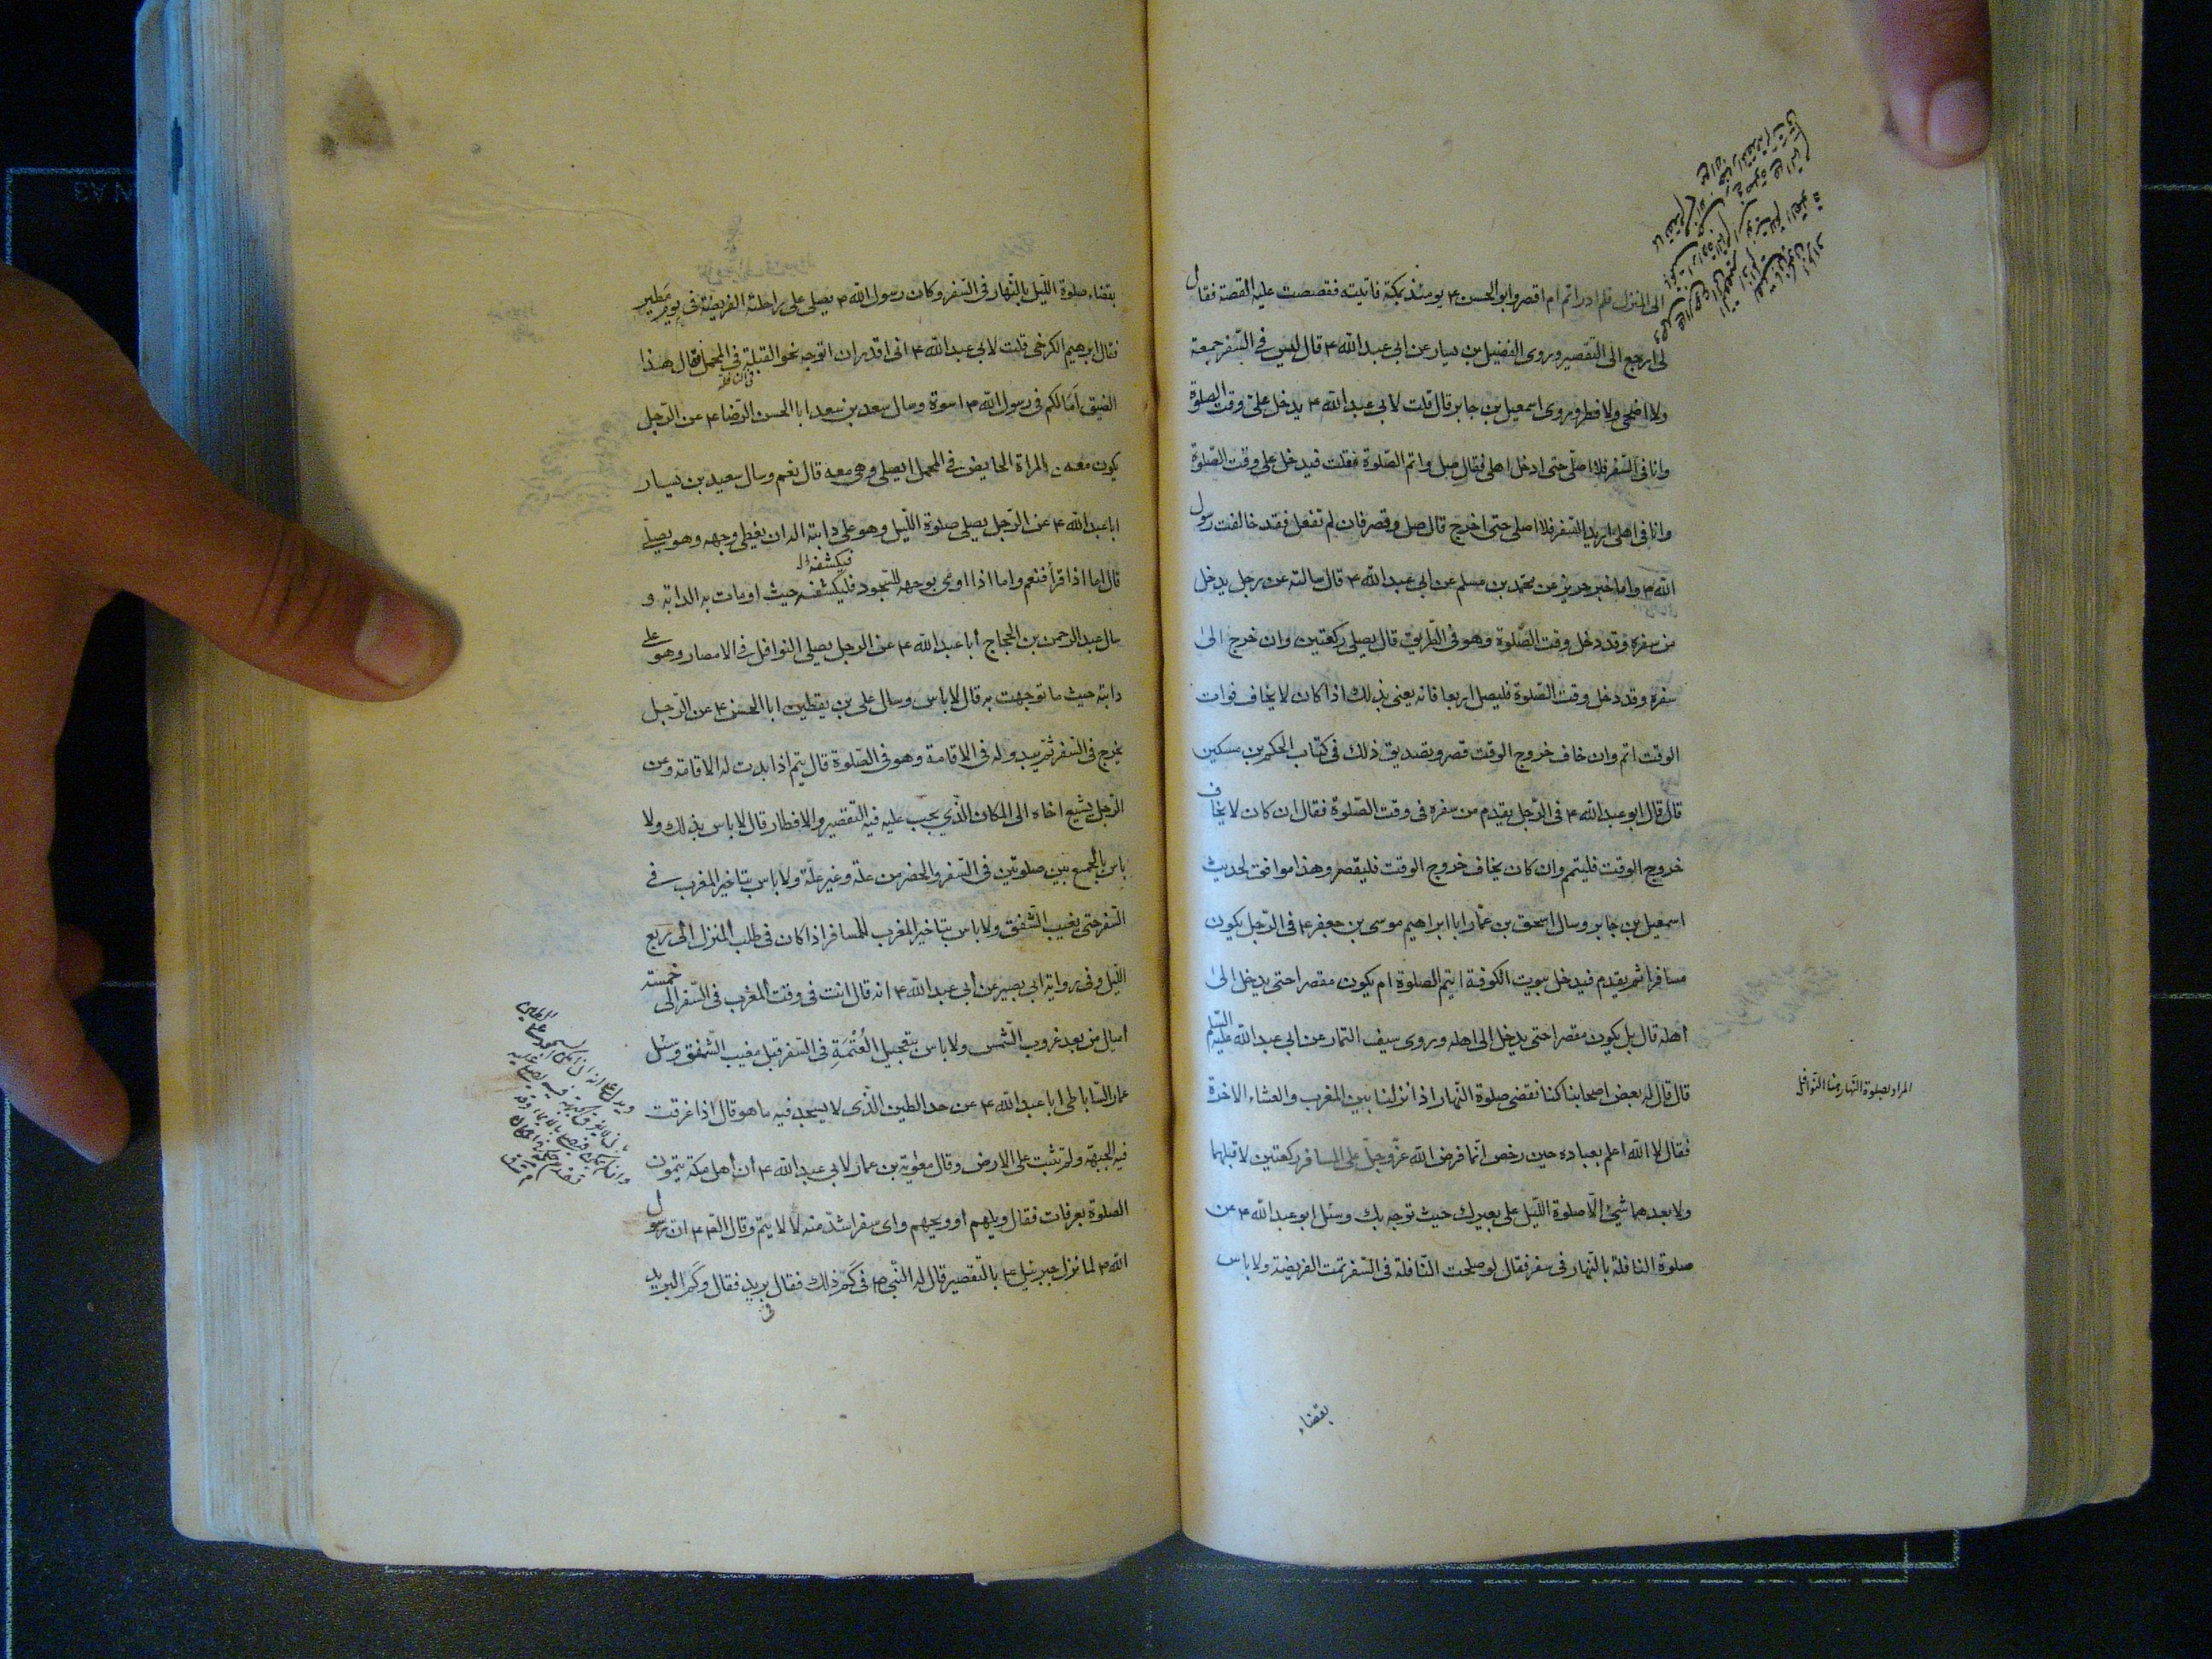 الى المنزل فلم ادر اتم ام اقصر وابو الحسن ع يومئذ بمكة فاتيته فقصصت عليه القصة فقال
لى ارجع الى التقصير وروى الفضيل بن يسار عن ابى عبد الله ع قال ليس فى السفر جمعة
ولا اضحى ولا فطر وروى اسمعيل بن جابر قال قلت لابى عبد الله ع يدخل علىّ وقت الصلوة
وانا فى السفر فلا اصلّى حتى ادخل اهلى فقال صل واتم الصّلوة فقلت فيدخل على وقت الصّلوة
وانا فى اهلى اريد السّفر فلا اصلى حتى اخرج قال صل وقصر فان لم تفعل فقد خالفت رسول
الله ص واما خبر حريز عن محمّد بن مسلم عن ابى عبد الله ع قال سالته عن رجل يدخل
من سفره وقد دخل وقت الصّلوة وهو فى الطّريق قال يصلى ركعتين وان خرج الى
سفره وقد دخل وقت الصّلوة فليصل اربعا فانه يعنى بذلك اذا كان لا يخاف فوات
الوقت اتم وان خاف خروج الوقت قصر وتصديق ذلك فى كتاب الحكم بن مسكين
قال قال ابو عبد الله ع فى الرّجل يقدم من سفره فى وقت الصّلوة فقال ان كان لا يخاف
خروج الوقت فليتمم وان كان يخاف خروج الوقت فليقصر وهذا موافق لحديث
اسمعيل بن جابر وسال اسحق بن عمّار ابا ابراهيم موسى بن جعفر ع فى الرّجل يكون
مسافرا ثم يقدم فيدخل بيوت الكوفة ايتم الصلوة ام يكون مقصرا حتى يدخل الى
اهله قال بل يكون مقصرا حتى يدخل الى اهله وروى سيف التمار عن ابى عبد الله عليه السلم
قال قال له بعض اصحابنا كنا نقضى صلوة النّهار اذا نزلنا بين المغرب والعشاء الاخرة
فقال لا الله اعلم بعباده حين رخص انّما فرض الله عزّ وجلّ على المسافر ركعتين لا قبلهما
ولا بعدهما شئ الّا صلوة اللّيل على بعيرك حيث توجه بك وسئل ابو عبد الله ع عن
صلوة النافلة بالنّهار فى سفر فقال لو صلحت النّافلة فى السّفر تمت الفريضة ولا باس
المراد بصلوة النّهار هنا النّوافل
بقضاء
بقضاء صلوة اللّيل بالنّهار فى السّفر وكان رسول الله ص يصلى على راحلته الفريضة فى يوم مَطير
فقال ابرهيم الكرخى قلت لابى عبد الله ع انى اقدر ان اتوجه نحو القبلة فى المحمل فقال هذا
الضيق اَما لكم فى رسول الله ص اسوة وسال سعد بن سعد ابا الحسن الرّضا ع عن الرّجل
يكون معه المراة الحايض فى المحمل ايصلى وهى معه قال نعم وسال سعيد بن يسار
ابا عبد الله ع عن الرّجل يصلى صلوة اللّيل وهو على دابته اله ان يغطى وجهه وهو يصلّى
فيكشفه
قال اما اذا قرأ فنعم واما اذا اومى بوجهه للسّجود فليكشفه حيث اومات به الدابة و
سال عبد الرحمن بن الحجاج أبا عبد الله ع عن الرجل يصلى النوافل فى الامصار وهو على
دابته حيث ما توجهت به قال لا باس وسال على بن يقطين ابا الحسن ع عن الرّجل
يخرج فى السّفر ثم يبدو له فى الاقامة وهو فى الصّلوة قال يتم اذا بدت له الاقامة وعن
الرّجل يشيع اخاه الى المكان الّذي يجب عليه فيه التّقصير والافطار قال لا باس بذلك ولا
باس بالجمع بين صلوتين فى السّفر والحضر من علّة وغير علّة ولا باس بتاخير المغرب فى
السّفر حتى يغيب الشّفق ولا باس بتاخير المغرب للمسافر اذا كان فى طلب المنزل الى ربع
اللّيل وفى رواية ابى بصير عن أبى عبد الله ع انه قال انت فى وقت المغرب فى السّفر الى خمسة
اميال من بعد غروب الشّمس ولا باس بتعجيل العُتْمَةِ فى السّفر قبل مغيب الشّفق وسئل
عمار السّاباطى ابا عبد الله ع عن حد الطين الّذى لا يسجد فيه ما هو قال اذا غرقت
فيه الجبهة ولم تثبت على الارض وقال معوية بن عمار لابى عبد الله ع أن أهل مكة يتمون
الصلوة بعرفات فقال ويلهم او ويحهم واى سفر اشدّ منه لا لا يتم وقال الصّ ع ان رسول
الله ص لما نزل جبرئيل ع بالتقصير قال له النّبى ص فى كَم ذلك فقال بريد فقال وكم البريد